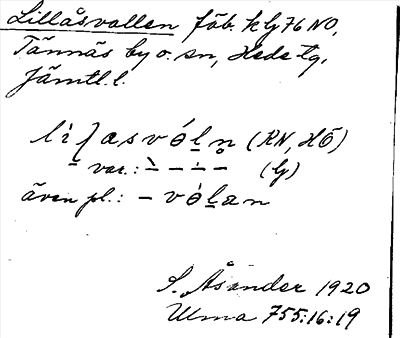 Lillåsvallen fäb. klg 76 NO,
Tännäs by o. sn, Hede tg,
Jämtl. l.
lìʃasvóḷn̥ (RN, HÖ)
var.: – – – – (lg)
även pl.: – vóḷan
S. Åsander 1920
Ulma 755:16:19